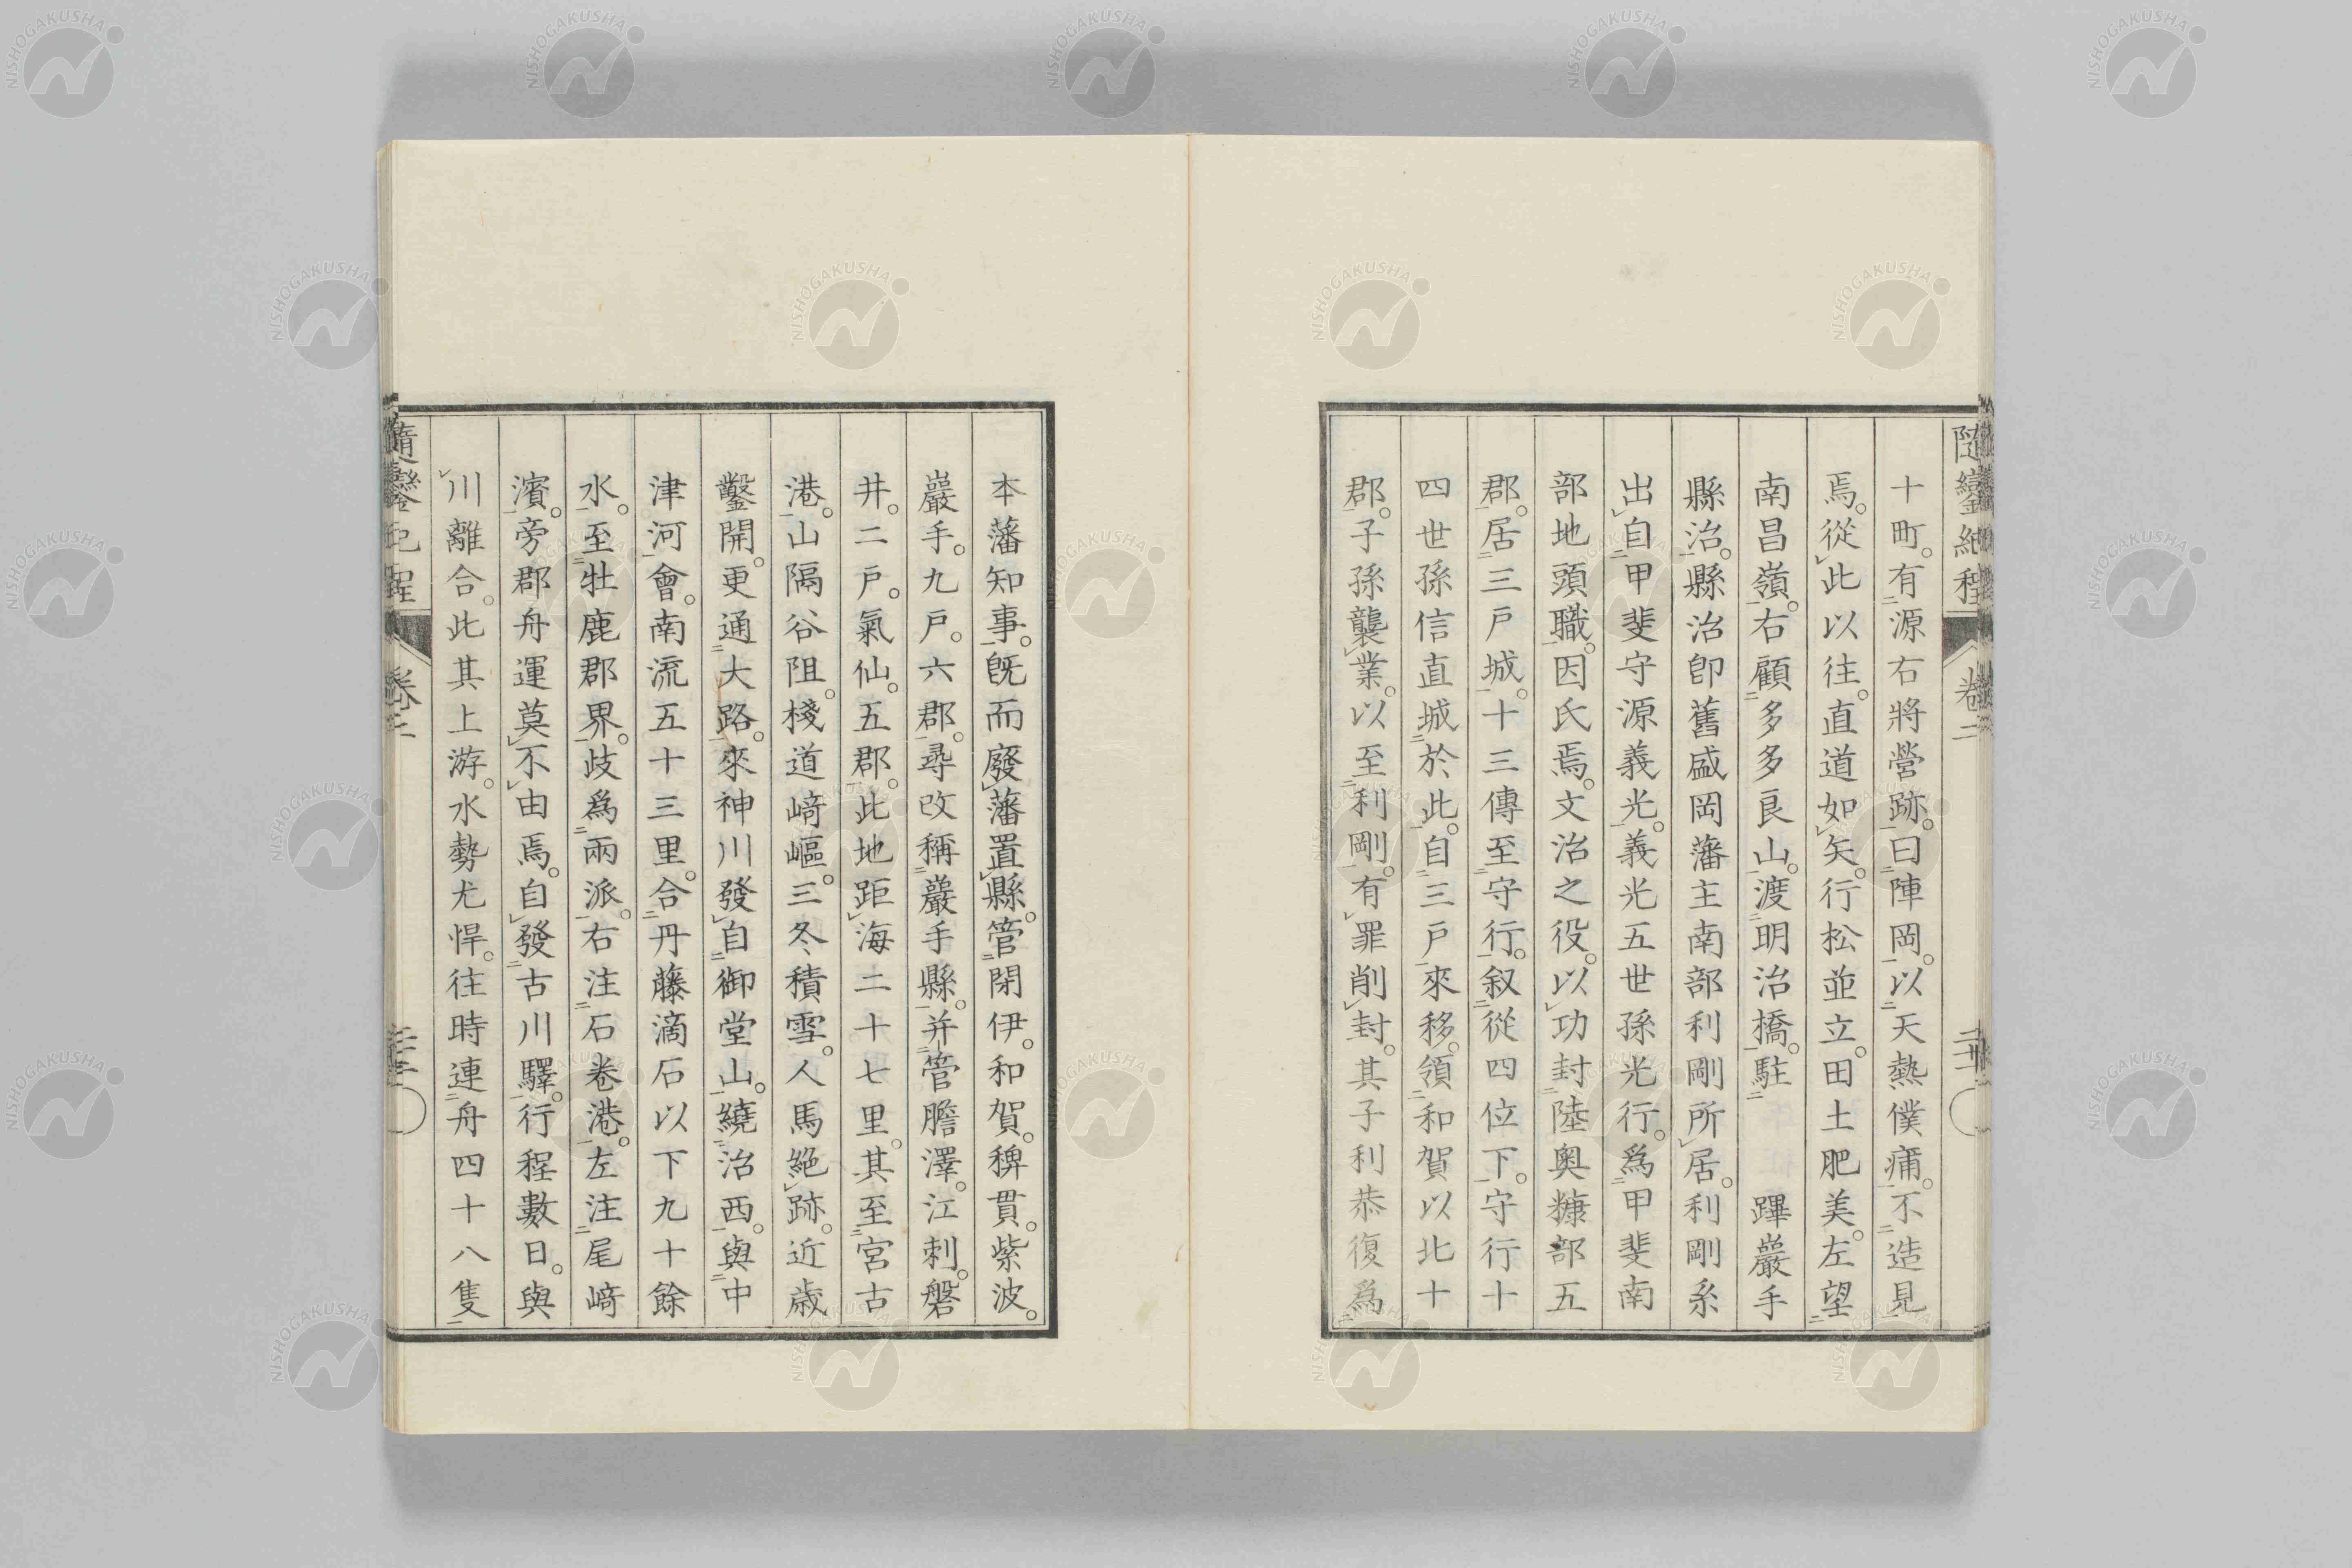 十町。有源右將營跡。曰陣岡。以天熱僕痡。不造見
焉。從此以往。直道如矢。行松並立。田土肥美。左望
南昌嶺。右顧多多良山。渡明治橋。駐　蹕巖手
縣治。縣治卽舊盛岡藩主南部利剛所居。利剛系
出自甲斐守源義光。義光五世孫光行。爲甲斐南
部地頭職。因氏焉。文治之役。以功封陸奧糠部五
郡。居三戶城。十三傳至守行。叙從四位下。守行十
四世孫信直城於此。自三戶來移。領和賀以北十
郡。子孫襲業。以至利剛。有罪削封。其子利恭復爲
本藩知事。旣而廢藩置縣。管閉伊。和賀。稗貫。紫波。
巖手。九戶。六郡。尋改稱巖手縣。并管膽澤。江刺。磐
井。二戶。氣仙。五郡。此地距海二十七里。其至宮古
港。山隔谷阻。棧道﨑嶇。三冬積雪。人馬絕跡。近歲
鑿開。更通大路。來神川發自御堂山。繞治西。與中
津河會。南流五十三里。合丹藤滴石以下九十餘
水。至牡鹿郡界。歧爲兩派。右注石卷港。左注尾﨑
濱。旁郡舟運莫不由焉。自發古川驛。行程數日。與
川離合。此其上游。水勢尤悍。往時連舟四十八隻
隨鑾紀程
卷二
NISHOGAKUSHA